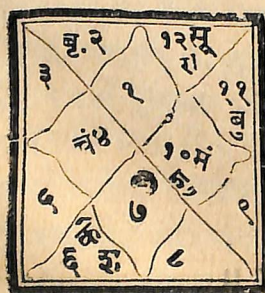 बृ. २
१२ सू
रा
३
१
११
बु
चं ४
१० मं
५
७
९
के
६
८